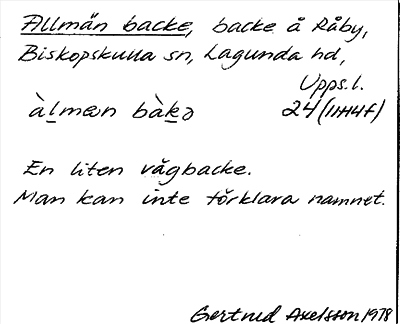 Allmän backe, backe å Råby,
Biskopskulla sn, Lagunda hd,
Upps.l.
àl̲mæn bàk̲ə 24 (11H4f)
En liten vägbacke.
Man kan inte förklara namnet.
Gertrud Axelsson 1978